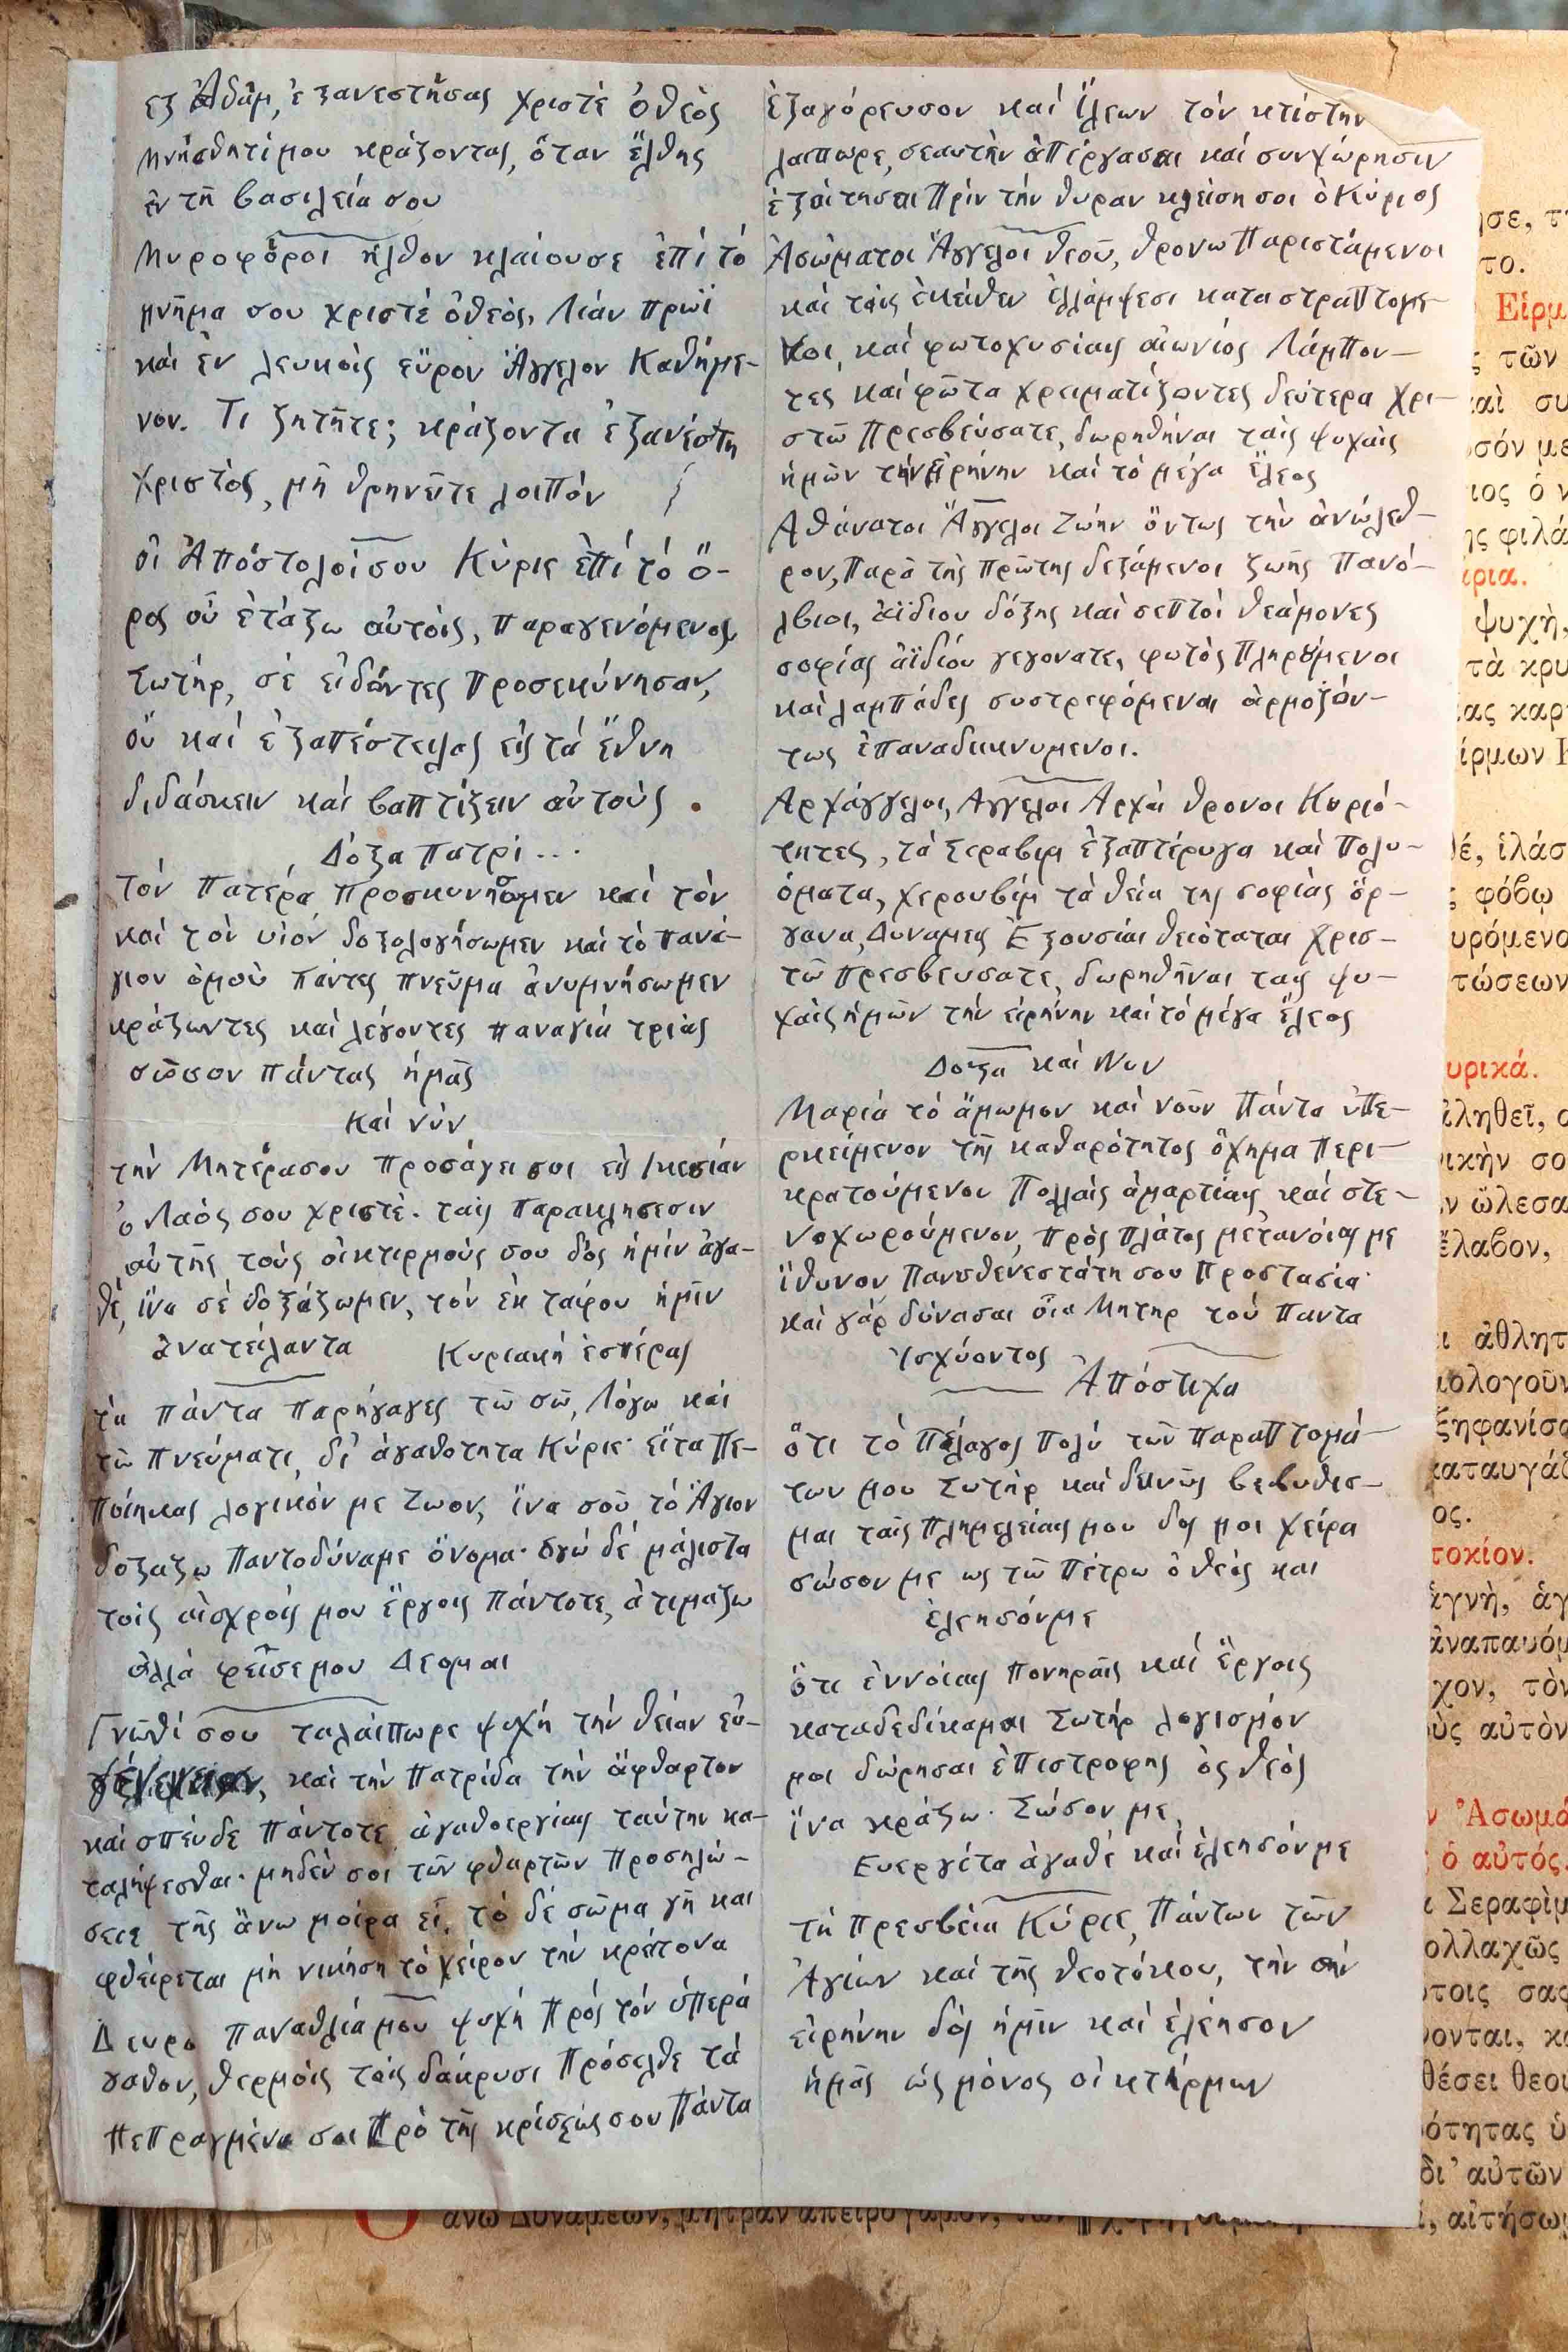 εξ Ἀδάμ, ἐξανεστῆσας χριστὲ ὁ θεὸς
Μνήσθητί μου κράζοντας, ὅταν ἔλθης
ἐν τῆ βασιλεία σου
Μυροφόροι ἦλθον κλαίουσε ἐπί τό
μνῆμα σου χριστέ ὁ θεός, Λιάν πρωΐ
καί ἐν λευκοίς εὗρον Ἄγγελον Καθήμε-
νον. Τι ζητῆτε; κράζοντα ἐξανέστη
χριστὸς, μῆ θρηνεῖτε λοιπόν
οἱ Ἀπόστολοί σου Κύριε ἐπί τό ὄ-
ρος οὗ ἐτάξω αὐτοίς, παραγενόμενος
Σωτήρ, σέ εἰδόντες προσεκύνησαν,
οὕ καί ἐξαπέστειλας εἰς τά ἔθνη
διδάσκειν καί βαπτίζειν αὐτούς .
Δόξα πατρί...
τόν πατέρα προσκυνήσωμεν καί τόν
καί τὸν υἱόν δοξολογήσωμεν καί τό πανά-
γιον ὁμού πάντες πνεῦμα ἀνυμνήσωμεν
κράζωντες καί λέγοντες παναγιά τριάς
σῶσον πάντας ἡμᾶς
Καί νύν
τήν Μητέρασου προσάγει σοι εἰς ἱκεσίαν
ὁ Λαός σου χριστέ. ταίς παρακλησεσιν
αὐτῆς τούς οἰκτιρμούς σου δὸς ἡμίν ἀγα-
θέ, ἵνα σέ δοξάζωμεν, τόν ἐκ τάφου ἡμῖν
ἀνατείλαντα Κυριακή ἑσπέρας
τα πάντα παρήγαγες τῶ σῶ, Λόγω καί
τῶ πνεύματι, δι' ἀγαθοτητα Κύριε· εἴτα πε-
ποίηκας λογικόν με Ζωον, ἵνα σοῦ τό Ἅγιον
δοξαζω παντοδύναμε ὄνομα· ἐγώ δέ μάλιστα
τοίς αἰσχροίς μου ἔργοις πάντοτε, ἀτιμαζω
ἀλλά φεῖσε μου Δεομαι
Γνῶθί σου ταλάιπωρε ψυχή τήν θείαν εὐ-
γένειαν, καί τήν πατρίδα τήν ἄφθαρτον
καί σπέυδε πάντοτε ἀγαθοεργίαις ταύτην κα-
ταλήψεσθαι· μηδὲν σοι τῶν φθαρτῶν προσηλώ-
σειε τῆς ἄνω μοίρα εἶ, τό δέ σῶμα γῆ και
φθείρεται μή νικήση τό χείρον τήν κρέιτονα
Δευρο παναθλία μου ψυχή πρός τόν ὑπερά
γαθον, θερμοίς τοίς δακρυσι πρόσελθε τά
πεπραγμένα σοι πρό τῆς κρίσεώς σου πάντα
ἐξαγόρευσον καί ἵλεων τόν κτίστην
λαιπωρε, σεαυτήν ἀπέργασαι καί συνχώρησιν
ἐξαίτησαι πρίν τήν θυραν κλείση σοι ὁ Κύριος
Ἀσώματοι Ἄγγελοι θεοῦ, θρονω παριστάμενοι
καί ταίς ἐκείθεν ἐλλάμψεσι καταστραπτομε-
νοι, καί φωτοχυσίαις αἰωνίος Λάμπον-
τες καί φῶτα χρειματίζοντες δεύτερα χρι-
στῶ πρεσβεύσατε, δωρηθήναι ταίς ψυχαίς
ἡμῶν τήν εἰρήνην καί τό μέγα ἔλεος
Ἀθάνατοι Ἄγγελοι Ζωήν ὄντως τήν ἀνώλεθ-
ρον, παρά τῆς πρῶτης δεξάμενοι ζωῆς πανό-
λβιοι, ἀϊδιου δόξης καί σεπτοί θεάμονες
σοφίας ἀϊδιόυ γεγονατε, φωτός πληρούμενοι
καί λαμπάδες συστρεφόμεναι ἀρμοζόν-
τως ἐπαναδεικνυμενοι.
Ἀρχάγγελοι, Ἀγγελοι Ἀρχάι θρονοι Κυριό-
τητες, τά Σεραβιμ ἐξαπτέρυγα καί πολυ-
όματα, χερουβίμ τά θεία της σοφίας ὄρ-
γανα, Δυναμεις Ἐξουσίαι θειόταται χρισ-
τῶ πρεσβευσατε, δωρηθῆναι ταις ψυ-
χαίς ἡμῶν τήν εἰρήνην καί τό μέγα ἔλεος
Δοξα καί Νυν
Μαρία τό ἄμωμον καί νοῦν πάντα ὑπε-
ρκείμενον τῆς καθαρότητος ὄχημα περι-
κρατούμενον πολλαίς ἁμαρτίαις καί στε-
νοχωρούμενον, πρός πλάτος μετανόιας με
ἴθυνον, πανσθενεστάτη σου προστασία·
καί γάρ δύνασαι οἷα Μητηρ τού παντα
Ἰσχύοντος
Ἀπόστιχα
ὅτι τό πέλαγος πολύ τῶν παραπτομά-
των μου Σωτήρ καί δεινῶς βεβυθισ-
μαι ταῖς πλημελείαις μου δος μοι χείρα
σώσον με ως τῶ πέτρω ὁ θεός και
ἐλεησόν με
ὅτι ἐννόιαις πονηραῖς καί ἔργοις
καταδεδίκαμαι Σωτήρ λογισμόν
μοι δώρησαι ἐπιστροφης ὁς θεός
ἵνα κράζω· Σώσον με,
Ευεργέτα ἀγαθέ καί ἐλεησόν με
τή πρεσβεία Κύριε, πάντων τῶν
Ἁγίων καί τῆς θεοτόκου, τήν σήν
εἰρήνην δός ἡμῖν καί ἐλέησον
ἡμᾶς ὡς μόνος οἰκτίρμων